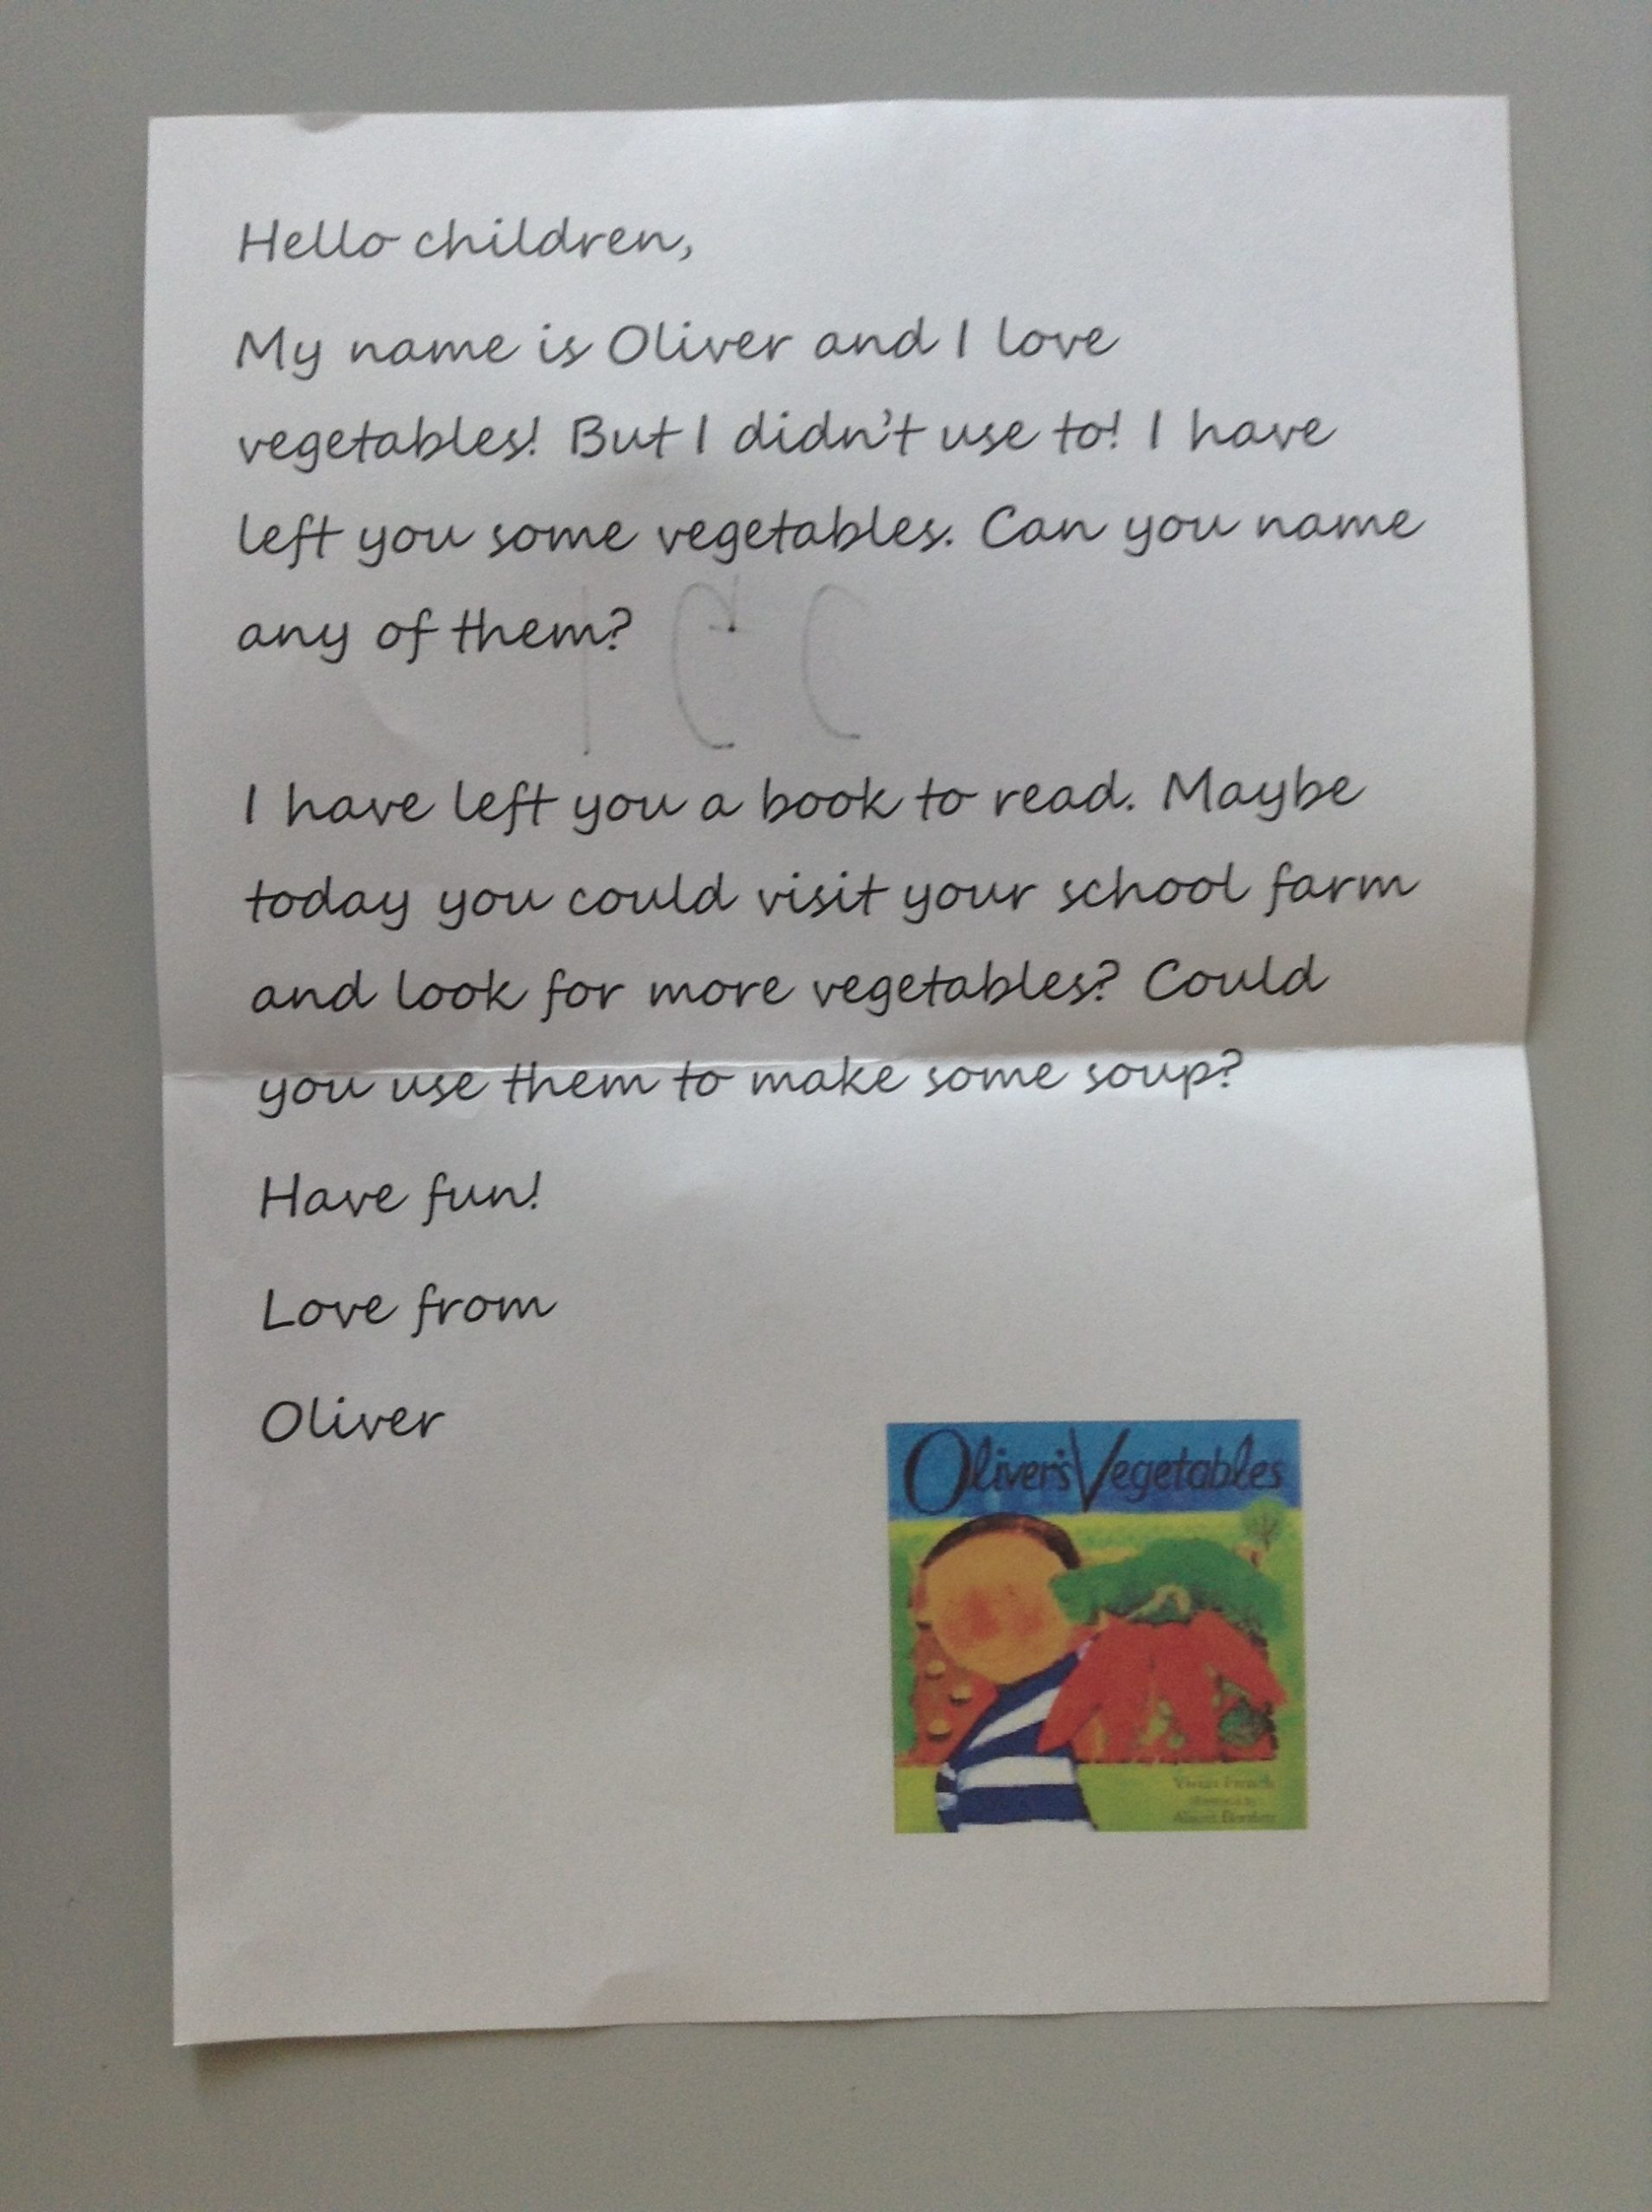 Hello children,
My name is Oliver and I love
vegetables! But I didn't use to! I have
left you some vegetables. Can you name
any of them?
I have left you a book to read. Maybe
today you could visit your school farm
and look for more vegetables? Could
you use them to make some soup?
Have fun!
Love from
Oliver
Oliver's Vegetables
Vivian French
illustrated by
Alison Bartlett